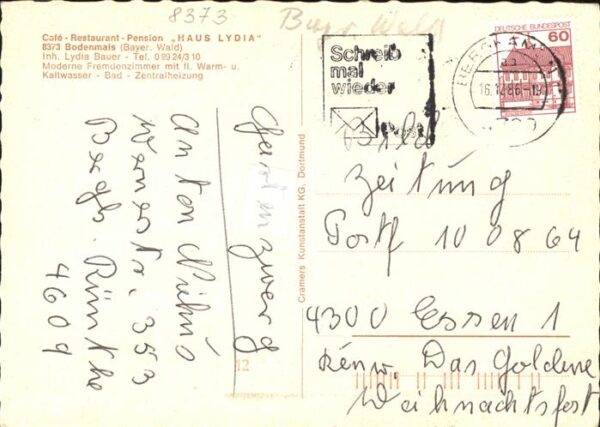 8373 Bayr Wald
Café - Restaurant - Pension „HAUS LYDIA"
8373 Bodenmais (Bayer. Wald)
Inh. Lydia Bauer - Tel. 0 99 24/3 10
Moderne Fremdenzimmer mit fl. Warm- u.
Kaltwasser - Bad - Zentralheizung
Schreib
mal
wieder
DEUTSCHE BUNDESPOST
60
16.12.86
Gartenzwerg
Anton
353
4609
Cramers Kunstanstalt KG, Dortmund
12
Bild
Zeitung
Postf 10 08 64
4300 Essen 1
Kennw. Das Goldene
Weihnachtsfest